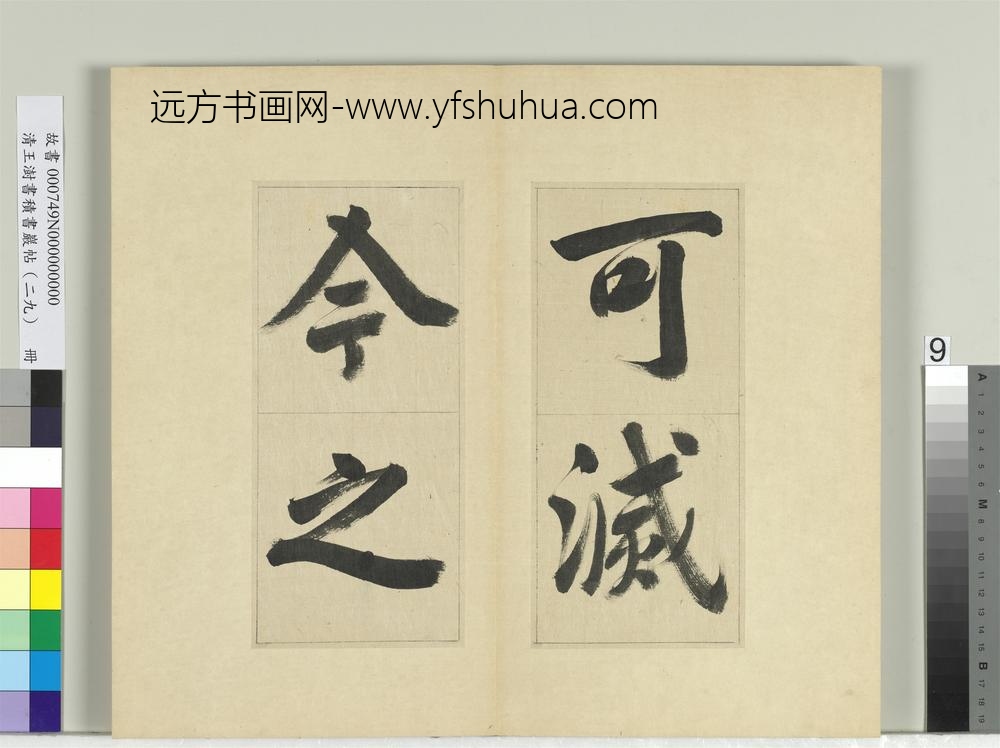 远方书画网-www.yfshuhua.com
可滅
今之
故書 000749N000000000
清王澍書積書巖帖（二九） 冊
9
A 1 2 3 4 5 6 M 8 9 10 11 12 13 14 15 B 17 18 19